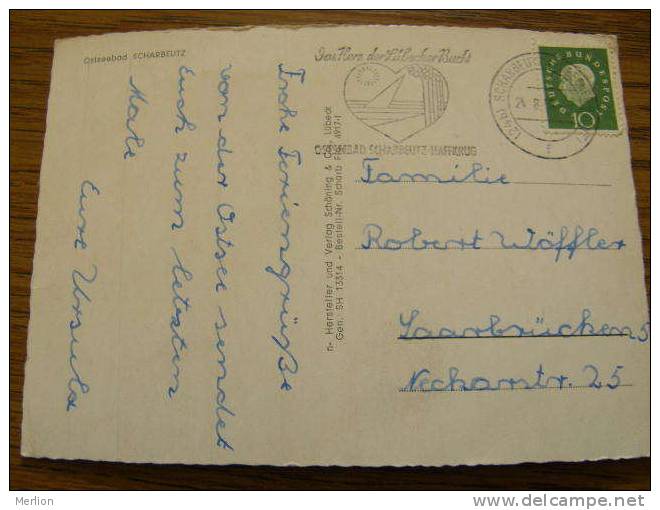 Ostseebad SCHARBEUTZ
Frohe Feriengrüße
von der Ostsee sendet
Euch zum letzten
Male
Eure Ursula
Hersteller und Verlag Schöning & Co., Lübeck
Gen. SH 13314 - Bestell-Nr. Scharb
Das Herz der Lübecker Bucht
OSTSEEBAD SCHARBEUTZ-HAFFKRUG
DEUTSCHE BUNDESPOST
10
Familie
Robert Wöffler
Saarbrücken 5
Neckarstr. 25
Merlion
www.delcampe.net